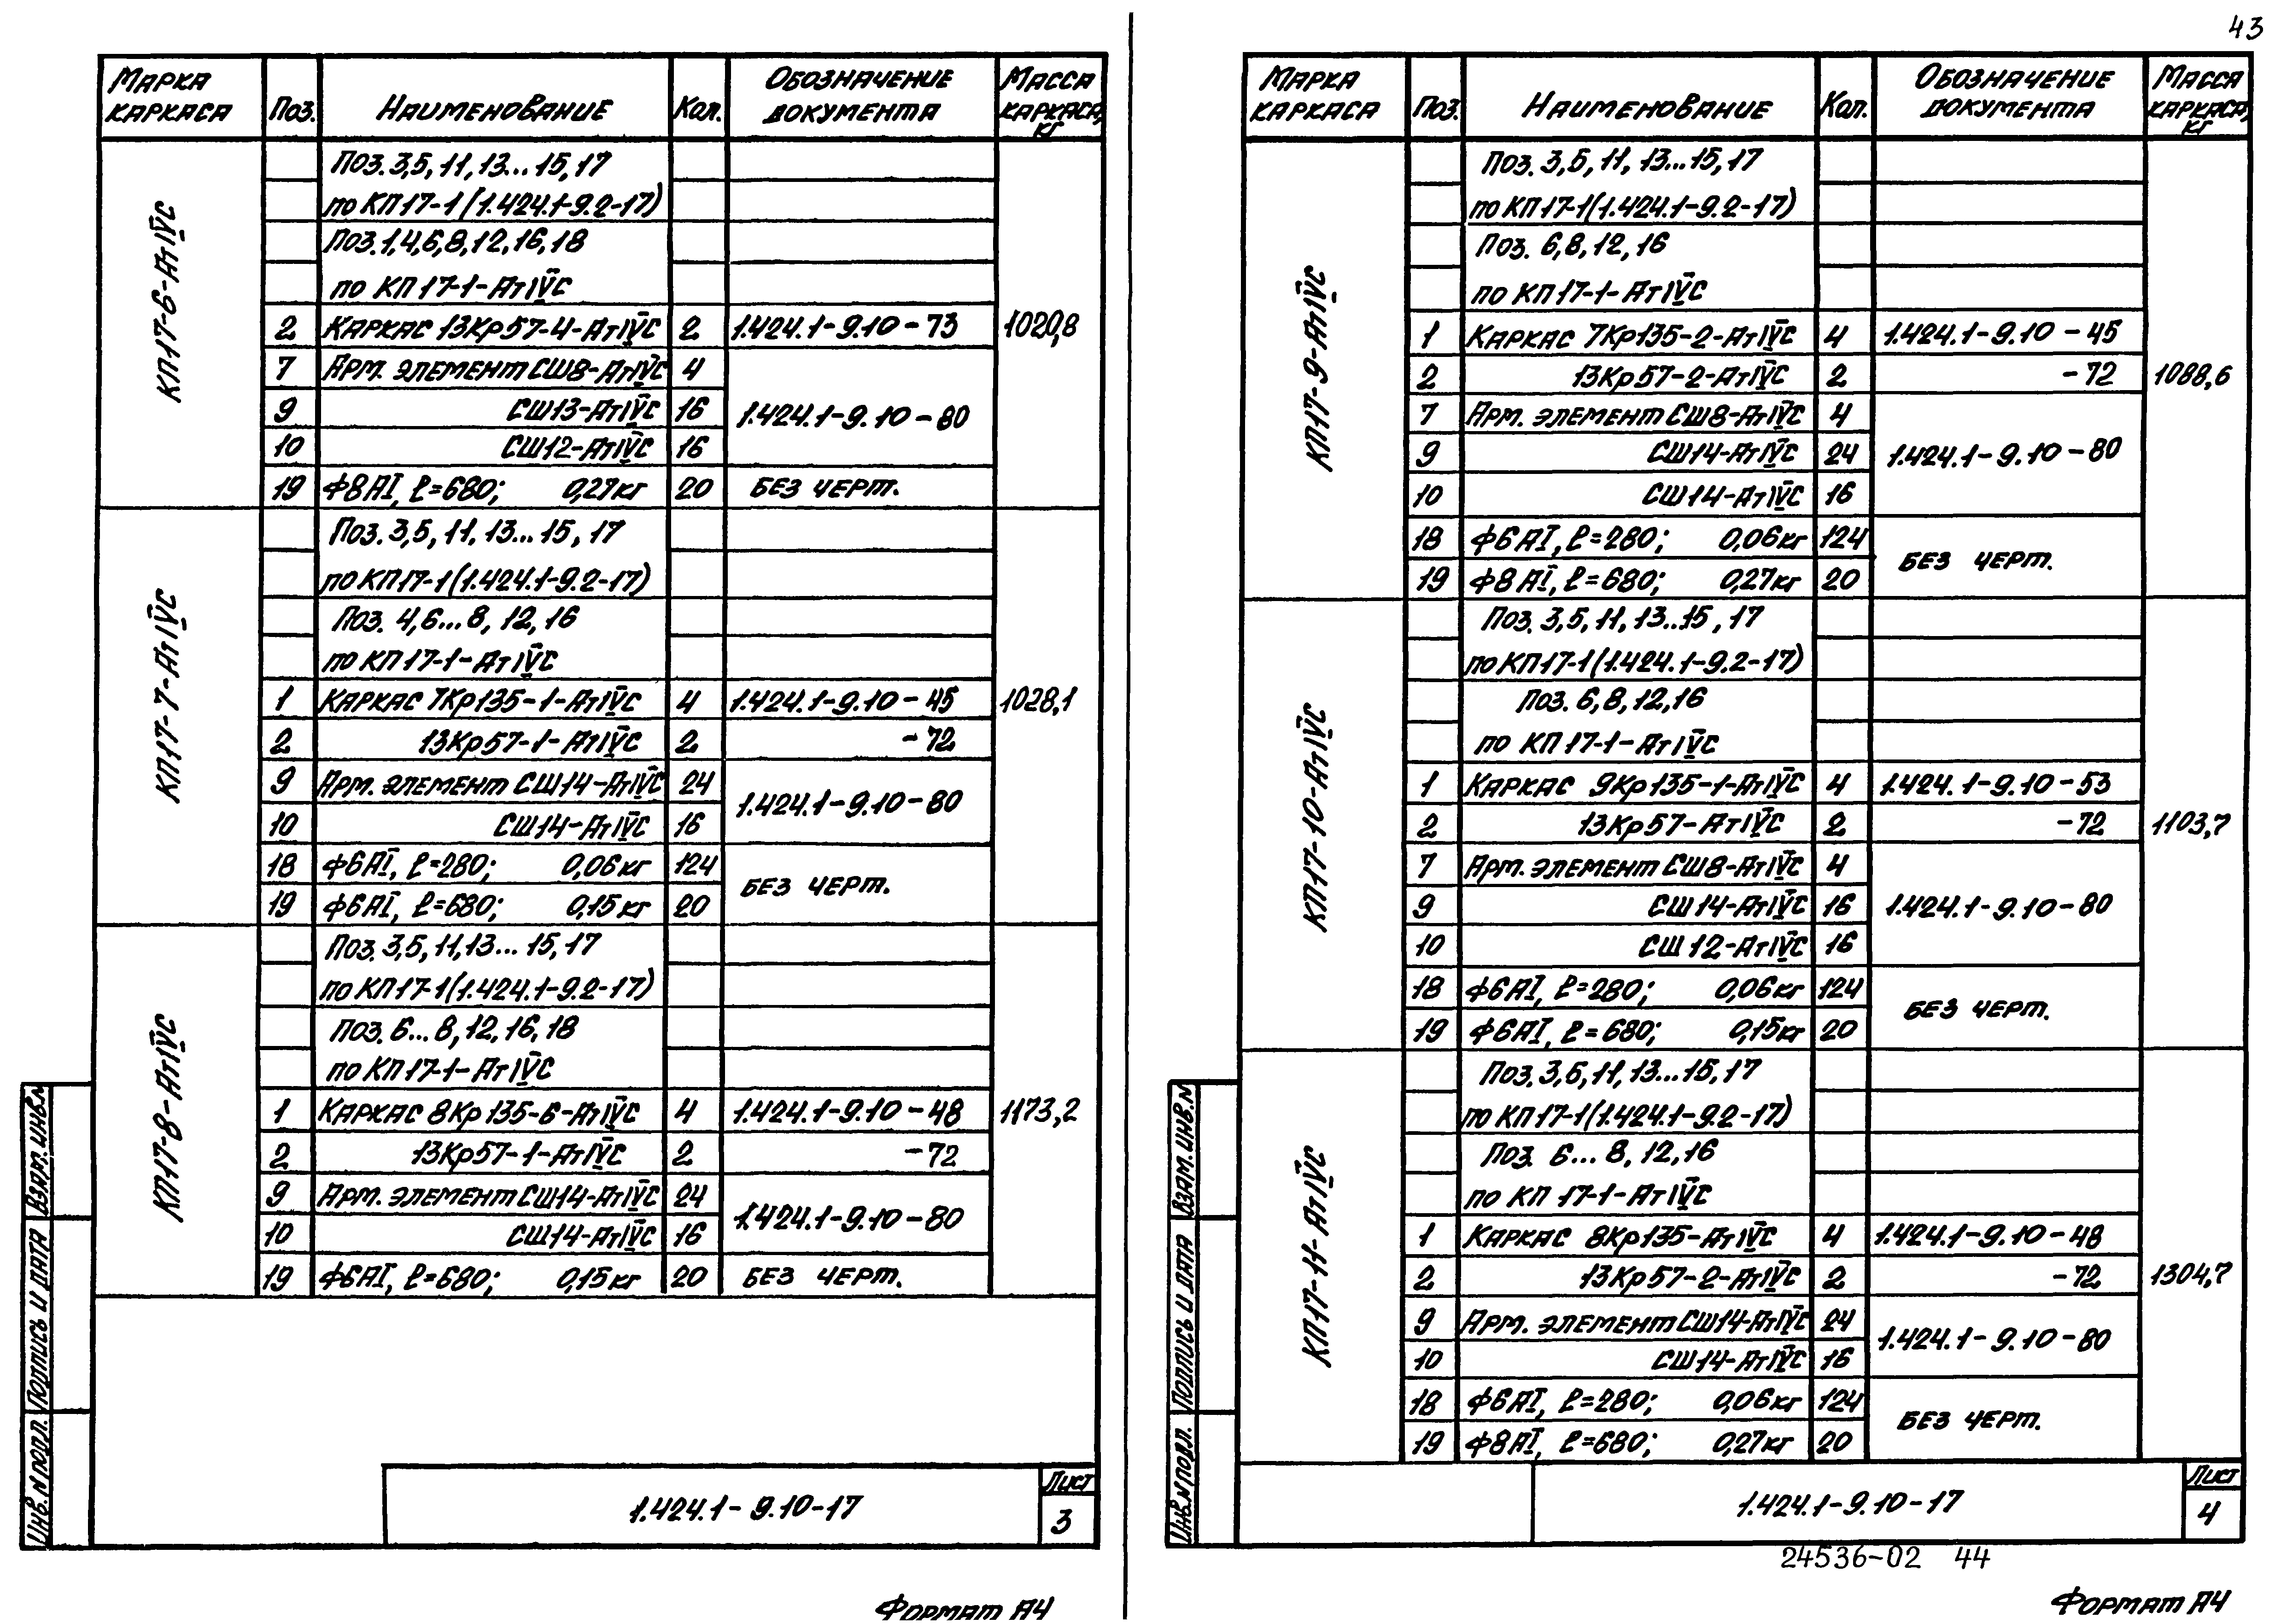 43
Марка каркаса Поз. Наименование Кол. Обозначение документа Масса каркаса, кг
КП17-6-АтIVС
Поз. 3,5,11,13...15,17
по КП17-1(1.424.1-9.2-17)
Поз.1,4,6,8,12,16,18
по КП17-1-АтIVС
2 Каркас 13Кр57-4-АтIVС 2 1.424.1-9.10-73 1020,8
7 Арм. элемент СШ8-АтIVС 4
9 СШ13-АтIVС 16 1.424.1-9.10-80
10 СШ12-АтIVС 16
19 Ф8АI, ℓ=680; 0,27кг 20 Без черт.
КП17-7-АтIVС
Поз. 3,5,11,13...15,17
по КП17-1(1.424.1-9.2-17)
Поз. 4,6...8,12,16
по КП17-1-АтIVС
1 Каркас 7Кр135-1-АтIVС 4 1.424.1-9.10-45 1028,1
2 13Кр57-1-АтIVС 2 -72
9 Арм. элемент СШ14-АтIVС 24 1.424.1-9.10-80
10 СШ14-АтIVС 16
18 Ф6АI, ℓ=280; 0,06кг 124 Без черт.
19 Ф6АI, ℓ=680; 0,15кг 20
КП17-8-АтIVС
Поз. 3,5,11,13...15,17
по КП17-1(1.424.1-9.2-17)
Поз. 6...8,12,16,18
по КП17-1-АтIVС
1 Каркас 8Кр135-6-АтIVС 4 1.424.1-9.10-48 1173,2
2 13Кр57-1-АтIVС 2 -72
9 Арм. элемент СШ14-АтIVС 24 1.424.1-9.10-80
10 СШ14-АтIVС 16
19 Ф6АI, ℓ=680; 0,15кг 20 Без черт.
Взам. инв. N
Подпись и дата
Инв. N подл.
1.424.1-9.10-17
Лист
3
Формат А4
Марка каркаса Поз. Наименование Кол. Обозначение документа Масса каркаса, кг
КП17-9-АтIVС
Поз. 3,5,11,13...15,17
по КП17-1(1.424.1-9.2-17)
Поз. 6,8,12,16
по КП17-1-АтIVС
1 Каркас 7Кр135-2-АтIVС 4 1.424.1-9.10-45
2 13Кр57-2-АтIVС 2 -72 1088,6
7 Арм. элемент СШ8-АтIVС 4
9 СШ14-АтIVС 24 1.424.1-9.10-80
10 СШ14-АтIVС 16
18 Ф6АI, ℓ=280; 0,06кг 124 Без черт.
19 Ф8АI, ℓ=680; 0,27кг 20
КП17-10-АтIVС
Поз. 3,5,11,13...15,17
по КП17-1(1.424.1-9.2-17)
Поз. 6,8,12,16
по КП17-1-АтIVС
1 Каркас 9Кр135-1-АтIVС 4 1.424.1-9.10-53
2 13Кр57-АтIVС 2 -72 1103,7
7 Арм. элемент СШ8-АтIVС 4
9 СШ14-АтIVС 16 1.424.1-9.10-80
10 СШ12-АтIVС 16
18 Ф6АI, ℓ=280; 0,06кг 124 Без черт.
19 Ф6АI, ℓ=680; 0,15кг 20
КП17-11-АтIVС
Поз. 3,5,11,13...15,17
по КП17-1(1.424.1-9.2-17)
Поз. 6...8,12,16
по КП17-1-АтIVС
1 Каркас 8Кр135-АтIVС 4 1.424.1-9.10-48
2 13Кр57-2-АтIVС 2 -72 1304,7
9 Арм. элемент СШ14-АтIVС 24 1.424.1-9.10-80
10 СШ14-АтIVС 16
18 Ф6АI, ℓ=280; 0,06кг 124 Без черт.
19 Ф8АI, ℓ=680; 0,27кг 20
Взам. инв. N
Подпись и дата
Инв. N подл.
1.424.1-9.10-17
Лист
4
24536-02 44
Формат А4